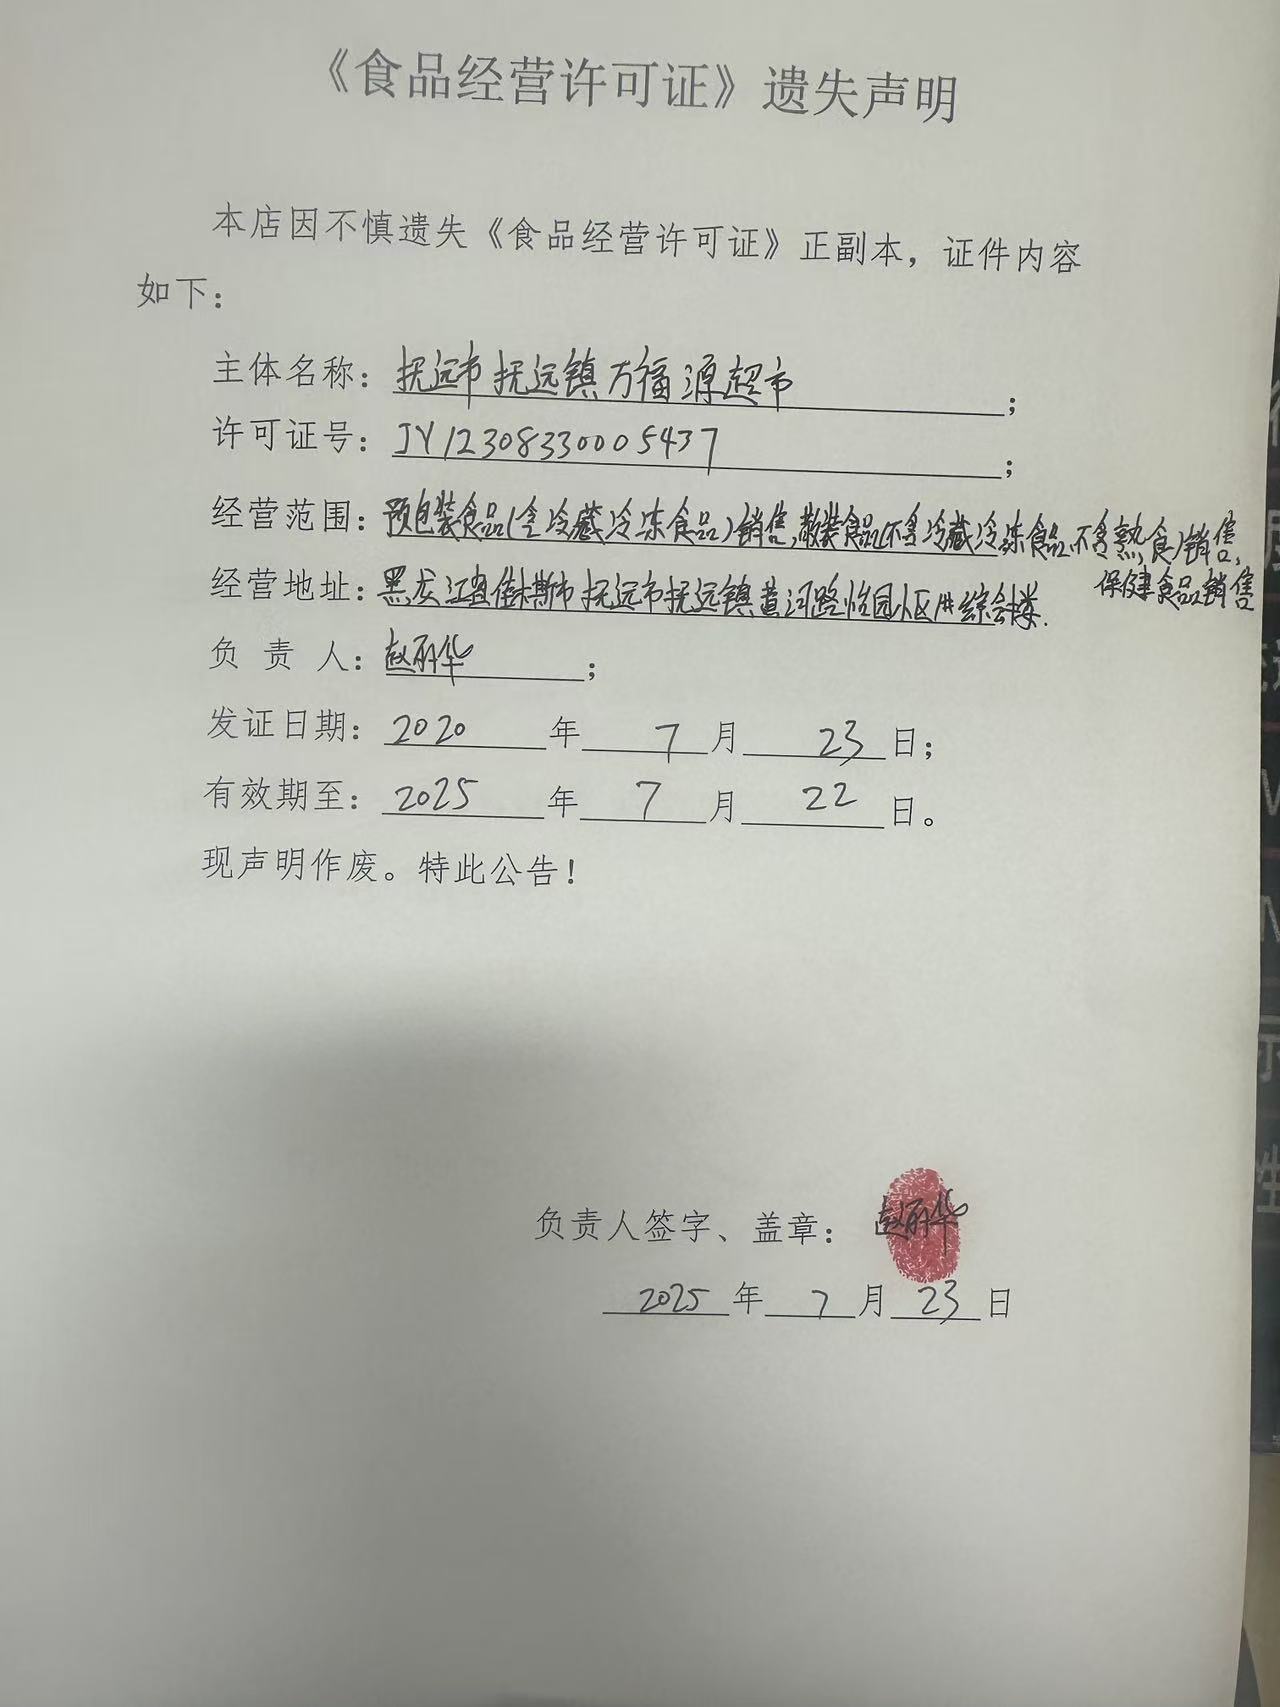 《食品经营许可证》遗失声明
本店因不慎遗失《食品经营许可证》正副本，证件内容
如下：
主体名称：抚远市抚远镇万福源超市；
许可证号：JY12308330005437；
经营范围：预包装食品(含冷藏冷冻食品)销售,散装食品(不含冷藏冷冻食品,不含熟食)销售,
保健食品销售
经营地址：黑龙江省佳木斯市抚远市抚远镇黄河路怡园小区1#综合楼.
负责人：赵丽华；
发证日期：2020年7月23日；
有效期至：2025年7月22日。
现声明作废。特此公告！
负责人签字、盖章：赵丽华
2025年7月23日